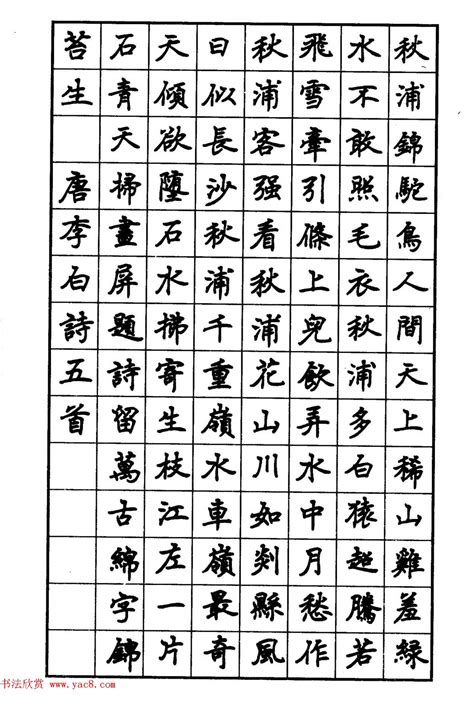 秋浦錦駝鳥人間天上稀山雞羞綠
水不敢照毛衣秋浦多白猿超騰若
飛雪牽引條上兒飲弄水中月愁作
秋浦客强看秋浦花山川如剡縣風
日似長沙秋浦千重嶺水車嶺最奇
天傾欲墮石水拂寄生枝江左一片
石青天掃畫屏題詩留萬古綿字錦
苔生 唐李白詩五首
书法欣赏 www.yac8.com